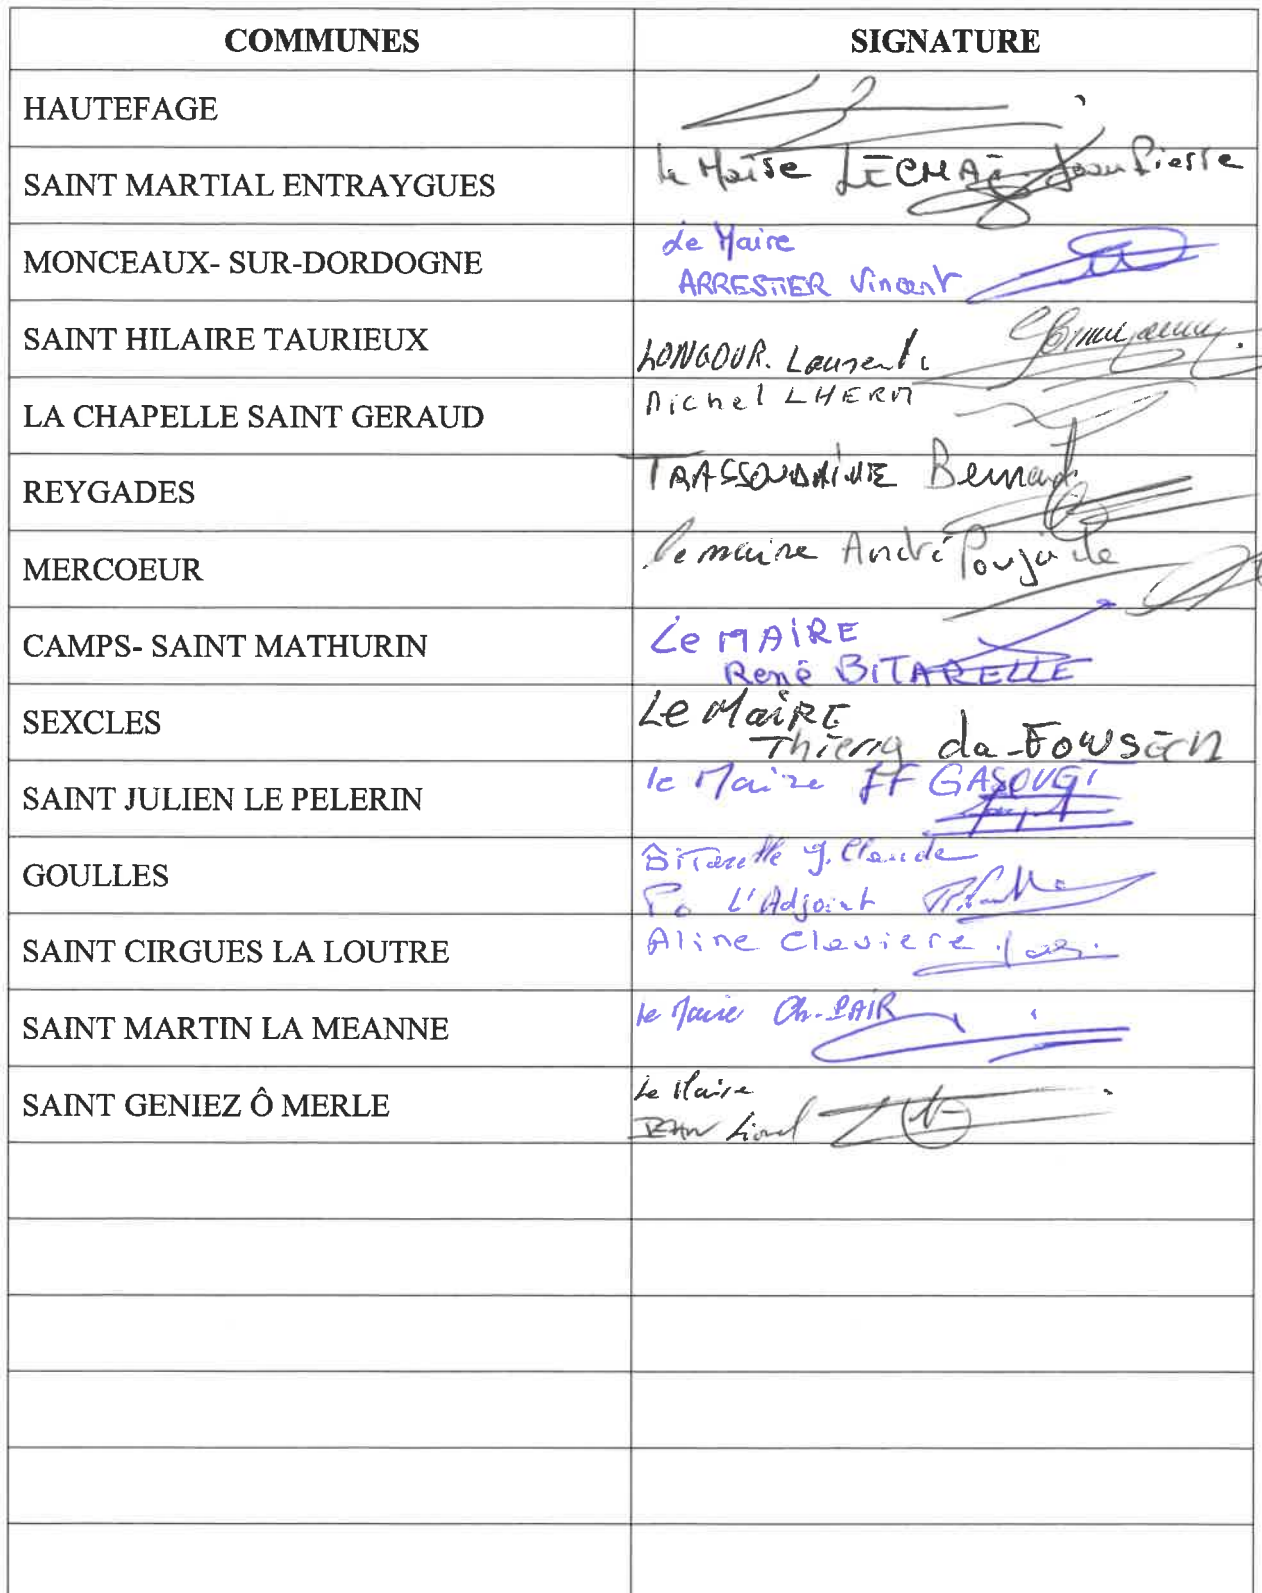 COMMUNES SIGNATURE
HAUTEFAGE
SAINT MARTIAL ENTRAYGUES le Maire Jean Pierre
MONCEAUX- SUR-DORDOGNE
Le Maire
ARRESTIER Vincent
SAINT HILAIRE TAURIEUX
LONGOUR. Laurent
LA CHAPELLE SAINT GERAUD Michel LHERM
REYGADES Bernard
MERCOEUR le maire André Poujade
CAMPS- SAINT MATHURIN
Le MAIRE
René BITARELLE
SEXCLES
Le MaiRE
Thierry da
SAINT JULIEN LE PELERIN le Maire
GOULLES
Bitarelle J. Claude
Po L'Adjoint
SAINT CIRGUES LA LOUTRE Aline Claviere
SAINT MARTIN LA MEANNE le Maire Ch. PAIR
SAINT GENIEZ Ô MERLE
Le Maire
Lionel